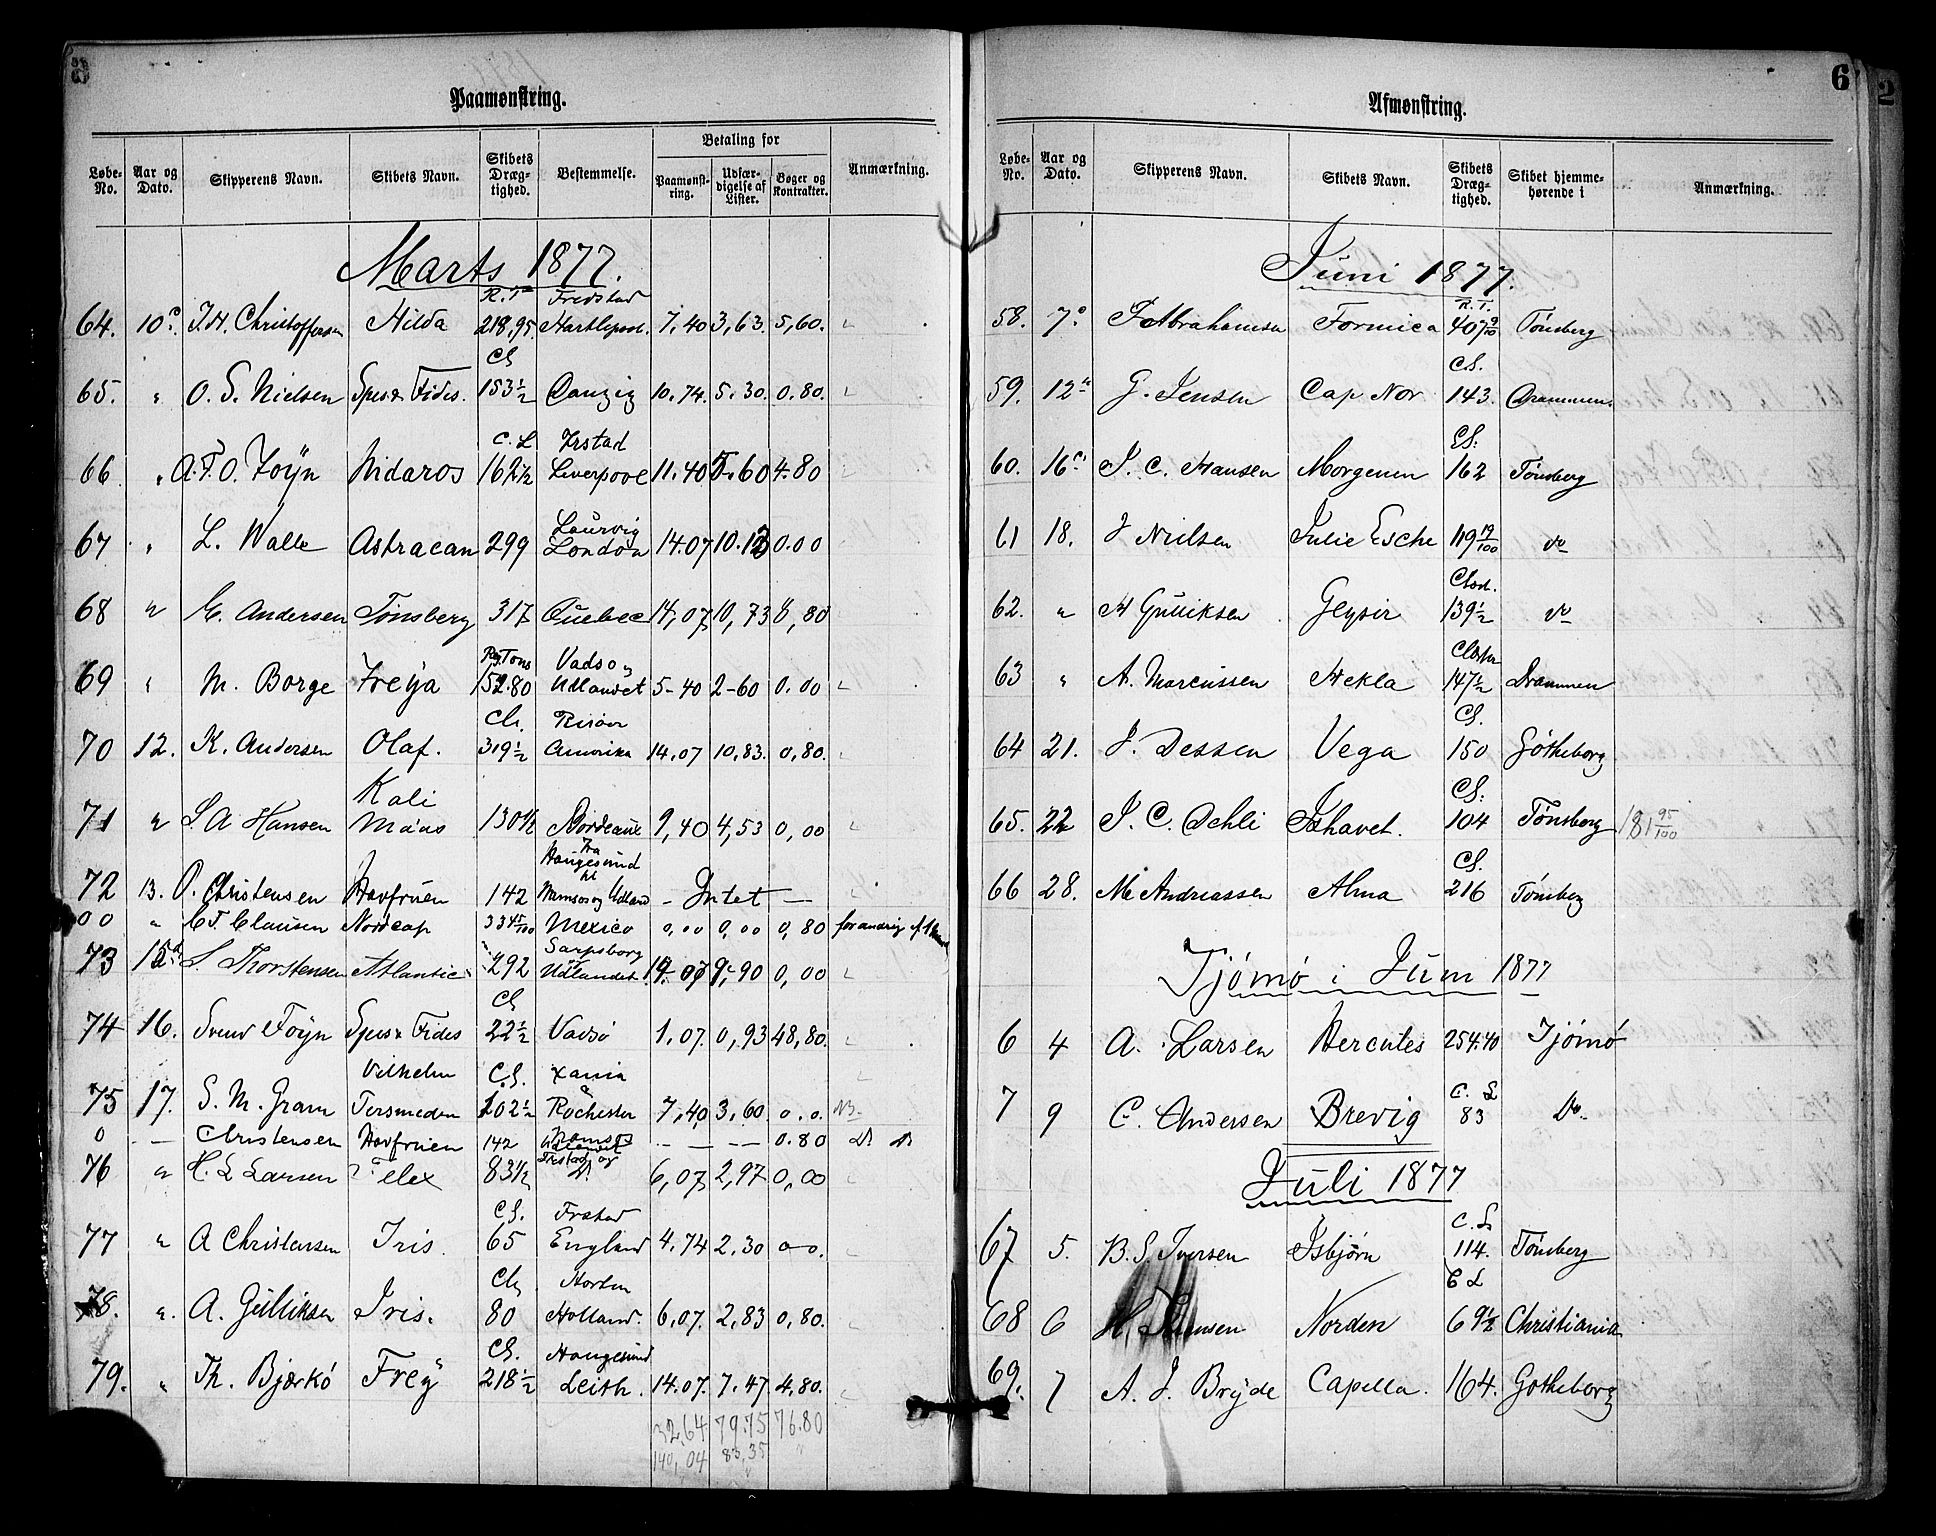 Paamønstring.
Løbe-No. Aar og Dato. Skipperens Navn. Skibets Navn. Skibets Dræg-tighed. Bestemmelse. Betaling for Paamønst-ring. Udfær-digelse af Lister. Bøger og Kontrakter. Anmærkning.
Marts 1877.
R. T Fredstad
64. 10 J. H. Christoffersen Hilda 218,95. Hartlepool. 7,40 3,63. 5,60.
Cl
65. " O. S. Nielsen Spes & Fides. 153 1/2 Danzig 10.74. 5.30. 0.80.
C. L Frstad
66 " A. F. O. Foÿn Nidaros 162 1/2 Liverpool 11.40 5.60 4.80
Laurvig
67 " L. Walle Astracan 299 London 14.07 10.13 0.00
68 " E. Andersen Tønsberg 317 Quebec 14,07 10,73 0,80
Reg Tons Vadsø og
69 " M. Borge Freÿa 152.80 Udlandet 5-40 2-60 0.00
Cl. Risøer
70 12. K. Andersen Olaf. 319 1/2 Amerika 14,07 10,83. 0,80.
Kali
71 " S. A Hansen Maas 130 1/2 Bordeaux 9,40 4,53 0,00
fra
Haugesund
til
72 13. O. Christensen Havfruen 142 Namsos og Udland - Intet -
00 " C F. Clausen Nordcap 334 5/100 Mexico 0,00 0,00 0,80
Sarpsborg
73 15 L. Thorstensen Atlantic 292 Udlandet 14.07 9,90 0,00
Cl
74 16. Svend Foÿn Spes & Fides 22 1/2 Vadsø 1,07. 0,93 48,80.
Vilhelm C. L. Xania
75 17. S. M. Gram Tersmeden 102 1/2 Rochester 7,40 3,60 0.0.
0 — Christensen Havfruen 142 Namsos Udlandet — — 0.80
Frstad og
76 " H. L Larsen Felex 83 1/2 6,07 2,97 0,00
C L. Frstad
77 " A Christensen Iris 65 England 4.74 2.30 0-0.
Cl Horten
78. " A. Gulliksen Iris. 80 Holland. 6,07. 2,83 0,80.
Cl. Haugesund
79. " Th. Bjærkø Freÿ 218 1/2 Leith. 14.07. 7.47 4,80.
32,64 79.75 76.80
140,04 83,35
6
Afmønstring.
Løbe-No. Aar og Dato. Skipperens Navn. Skibets Navn. Skibets Dræg-tighed. Skibet hjemme-hørende i Anmærkning.
Juni 1877.
R. T.
58. 7 J Abrahamsen Formica 407 9/10 Tønsberg
CL.
59. 12 G. Jensen Cap Nor 143. Drammen.
CL:
60. 16 J. C. Hansen Morgenen 162 Tønsberg
61 18. J Nielsen Julie Esche 119 19/100 do
62. " H Gulliksen Geysir 139 1/2 do
63 " A. Marcussen Hekla 147 1/2 Drammen
CL.
64 21. J. Dessen Vega 150 Gøtheborg
CL:
65. 22 J. C. Dehli Ishavet. 104 Tønsberg 181 95/100
CL.
66 28. M Andreassen Alma 216 Tønsberg
Tjømø i Juni 1877
6 4 A. Larsen Hercules 254.40 Tjømø
C. L
7 9 C. Andersen Brevig 83 Do.
Juli 1877
C. L
67 5. B. S. Iversen Isbjørn 114. Tønsberg
C L
68 6 H. Hansen Norden 69 1/2 Christiania
69. 7 A. J. Bryde Capella. 164. Gøtheborg